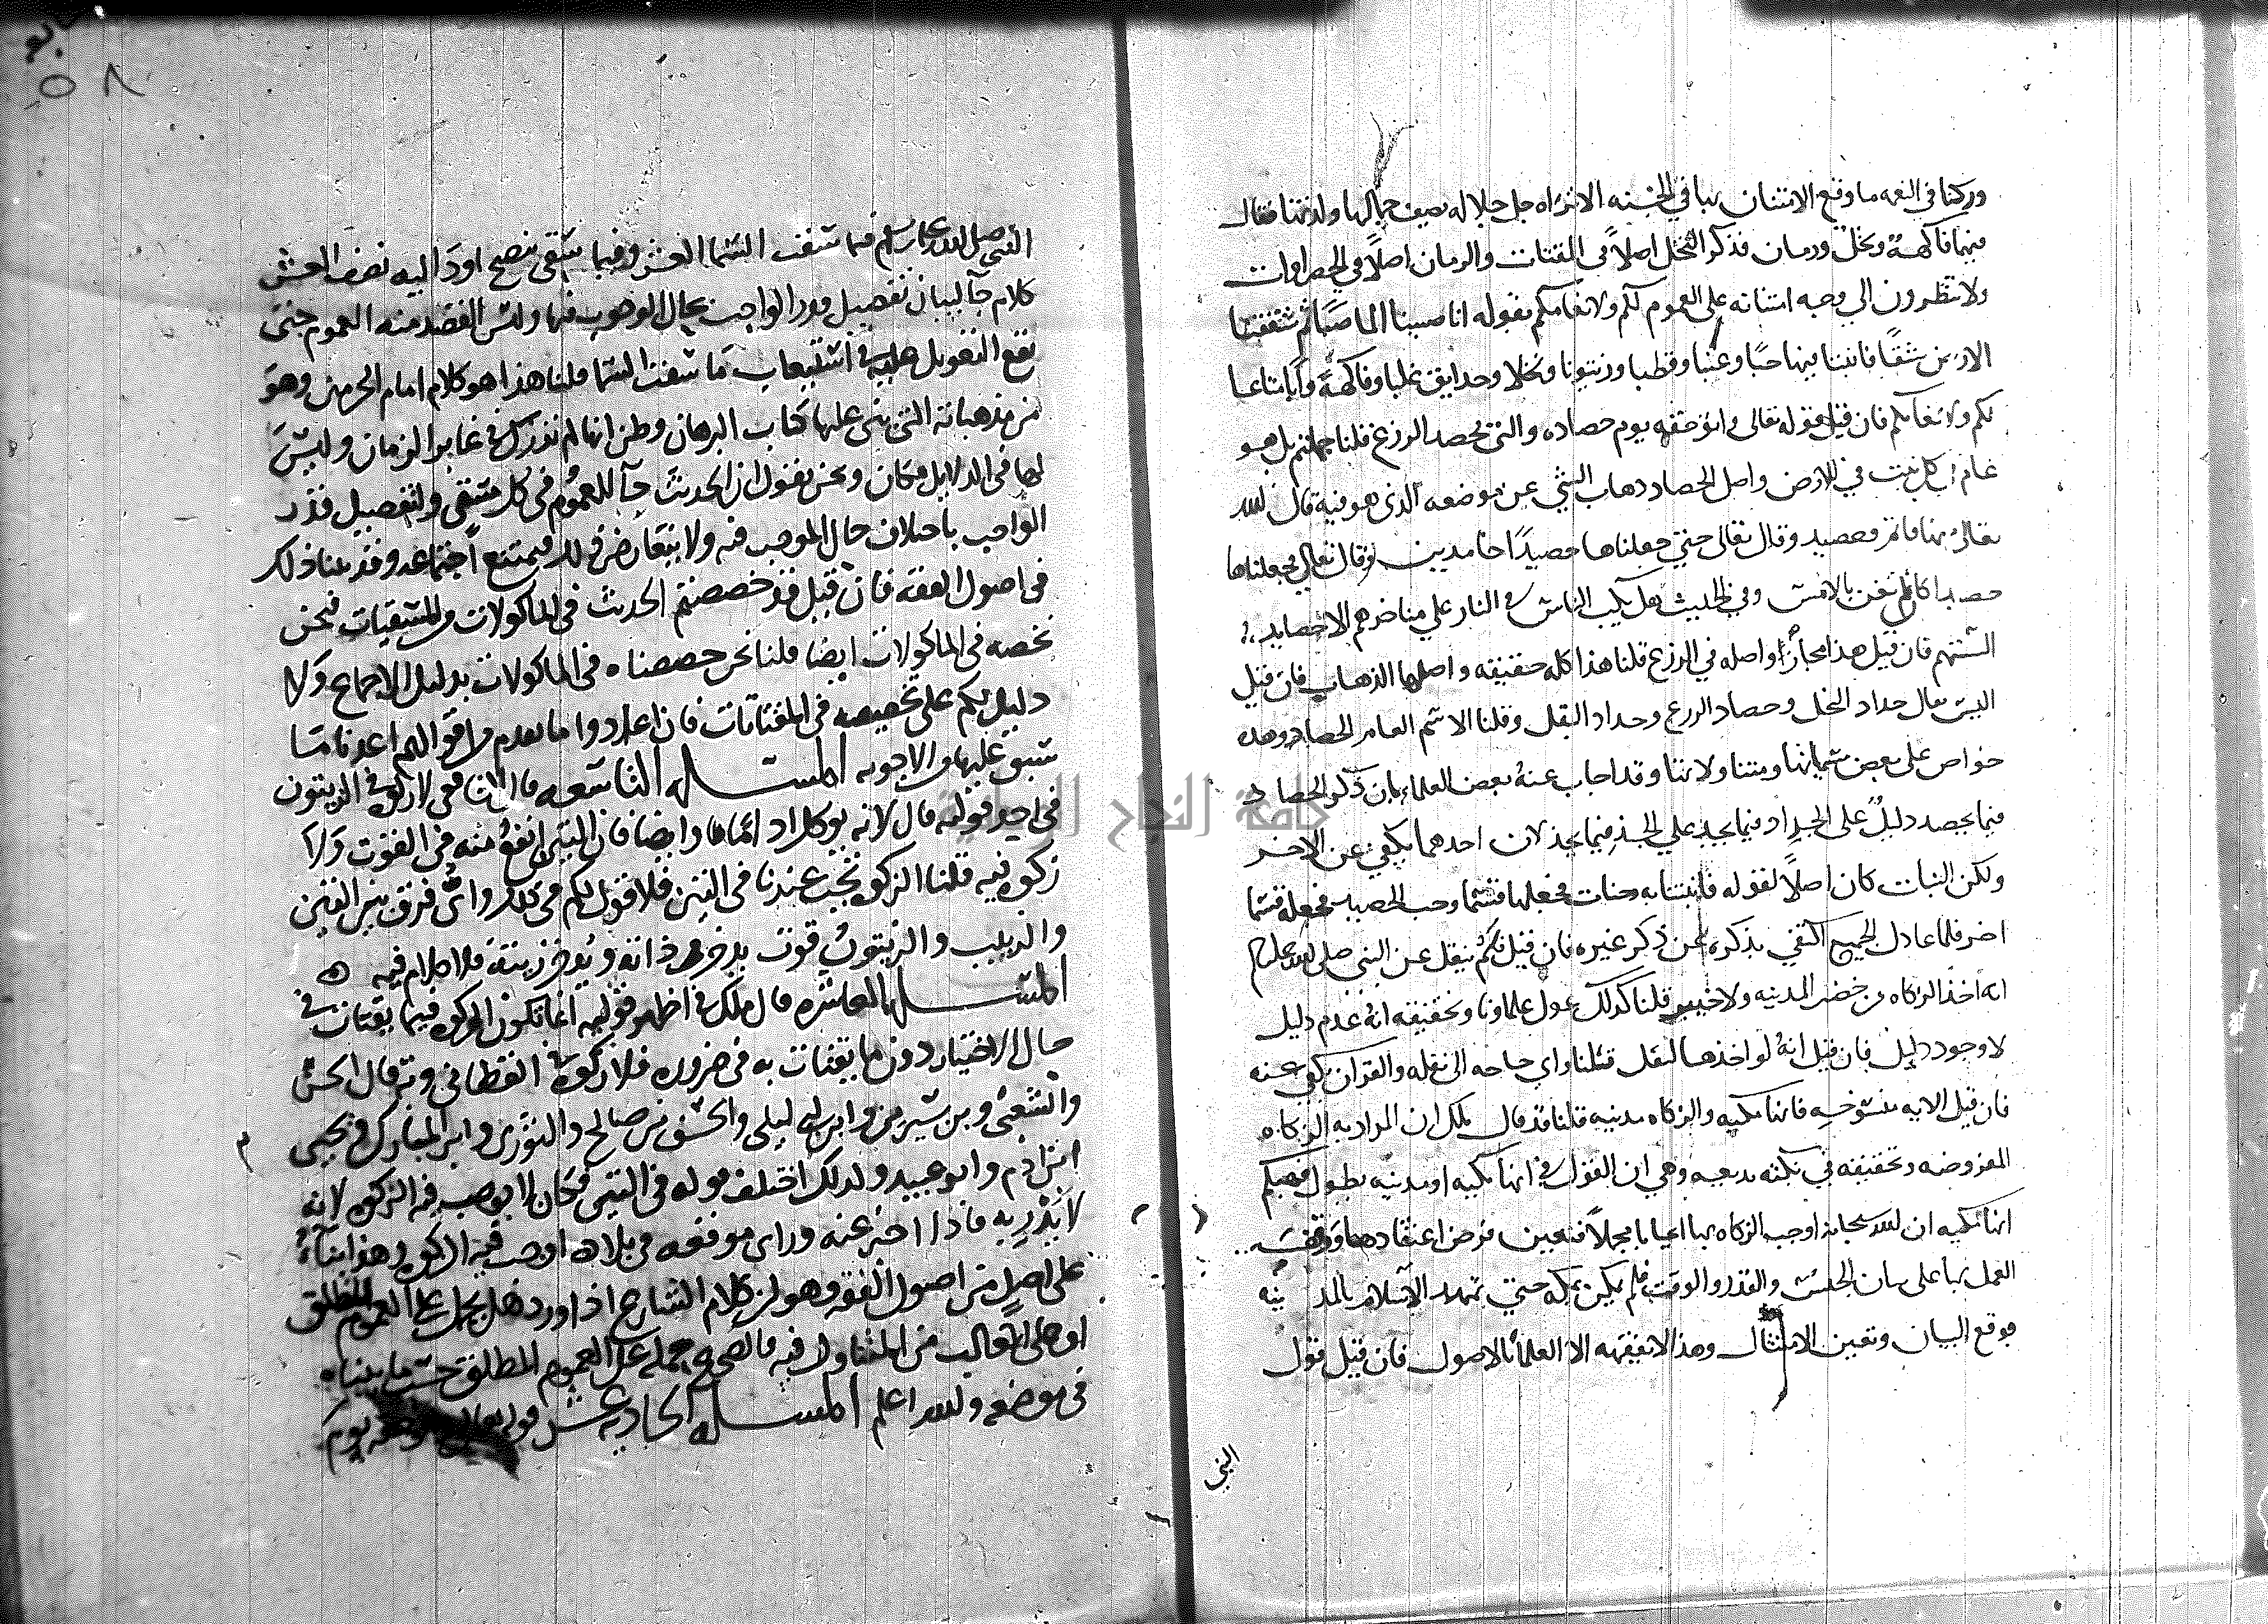 وركنا في النعمه ما وقع الامتنان بها في الجنه الا تراه جل جلاله يصف جمالها ولذتها فقال
فيهما فاكهة ونخل ورمان فذكر النخل اصلاً في المقتات والرمان اصلاً في الخضراوات
ولا تنظرون الي وجه امتنانه على العموم لكم ولانعامكم بقوله انا صببنا الما صبًا ثم شققنا
الارض شقًا فانبتنا فيها حبًا وعنبا وقضبا وزيتونا ونخلا وحدايق غلبا وفاكهةً وأبًا متاعا
لكم ولانعامكم فان قيل فقوله تعالى واتوا حقه يوم حصاده والذي يحصد الزرع قلنا جهلتم بل هو
عام في كل نبت في الارض واصل الحصاد دهاب الشي عن موضعه الذى هو فيه قال الله
تعالى منها قايم وحصيد وقال تعالى حتي جعلناها حصيدًا خامدين وقال تعالى فجعلناها
حصيدا كان لم تغن بالامس وفي الحديث هل يكب الناس في النار علي مناخرهم الا حصايد
السنتهم فان قيل هذا مجازٌ واصله في الزرع قلنا هذا كله حقيقه واصلها الذهاب فان قيل
اليس يقال جداد النخل وحصاد الزرع وجداد البقل وقلنا الاسم العام الحصاد وهذه
خواص على بعض مسمياتها ومتناولاتها وقد اجاب عنه بعض العلماء بان ذكر الحصاد
فيما يحصد دليلٌ على الجداد فيما يجد علي الجذ فيما يجذ لان احدهما يكفي عن الاخر
ولكن النبات كان اصلاً لقوله فانبتنا به جنات فجعلها قسما وحب الحصيد فجعله قسما
اخر فلما عادل الجميع اكتفي بذكره عن ذكر غيره فان قيل فلم ينقل عن النبي صلى الله عليه وسلم
انه اخذ الزكاه من خضر المدينه ولا خيبر قلنا كذلك عول علماونا وتحقيقه انه عدم دليل
لا وجود دليل فان قيل انه لو اخذها لنقل قلنا واي حاجه الى نقله والقران يكفي عنه
فان قيل الايه منسوخه فانها مكيه والزكاه مدنيه قلنا قد قال ملك ان المراد به الزكاه
المفروضه وتحقيقه في نكته بديعه وهي ان القول في انها مكيه او مدنيه يطول فهبكم
انها مكيه ان الله سبحانه اوجب الزكاه بها ايجابا مجملاً فتعين فرض اعتقادها ووقف
العمل بها على بيان الجنس والقدر والوقت فلم يكن بمكه حتي تمهد الاسلام بالمدينه
فوقع البيان وتعين الامتثال وهذا لا يفقهه الا العلما بالاصول فان قيل قول
النبي
النبي صلى الله عليه وسلم فيما سقت السما العشر وفيما سقي بنضح او دالية نصف العشر
كلام جا لبيان تفصيل قدر الواجب بحال الوجوب فيها وليس القصد منه العموم حتى
يقع التعويل عليه في استيعاب ما سقت السما قلنا هذا هو كلام امام الحرمين وهو
من مذهباته التي بنى عليها كتاب البرهان وظن انها لم تدرك في غابر الزمان وليس
لها في الدلايل مكان ونحن نقول ان الحديث جا للعموم في كل مسقي ولتفصيل قدر
الواجب باختلاف حال الموجب فيه ولا يتعارض ذلك فيمتنع اجتماعه وقد بينا ذلك
في اصول الفقه فان قيل قد خصصتم الحديث في الماكولات والمسقيات فنحن
نخصه في الماكولات ايضا قلنا نحن خصصناه في الماكولات بدليل الاجماع ولا
دليل لكم على تخصيصه في المقتاتات فان اعادوا ما تقدم من اقوالهم اعدنا ما
سبق عليها من الاجوبه المسله التاسعه قال الشافعي لا زكوة في الزيتون
في احد قوليه قال لانه يوكل ادامًا وايضا فان التين انفع منه في القوت ولا
زكوه فيه قلنا الزكوه تجب عندنا في التين فلا قول لكم في ذلك واي فرق بين التين
والزبيب والزيتون قوت يدخر في ذاته ويدخر زيته فلا كلام فيه ه
المسله العاشره قال ملك في اظهر قوليه انما تكون الزكوه فيما يقتات في
حال الاختيار دون ما يقتات به في ضروره فلا زكوة في القطاني وبه قال الحسن
والشعبي وبن سيرين وابن ابي ليلى والحسن بن صالح والثوري وابن المبارك ويحيى
ابن ادم وابو عبيد ولذلك اختلف قوله في التين فكان لا يوجب فيه الزكوه لانه
لا يدريه فاذا اخبر عنه وراى موقعه في بلاده اوجب فيه الزكوه وهذا بناءً
على اصل من اصول الفقه وهو ان كلام الشارع اذا ورد هل يحمل على العموم المطلق
او على الغالب من المتناول فيه والصحيح حمله على العموم المطلق حسبما بيناه
في موضعه والله اعلم المسله الحاديه عشر قوله تعالى حقه يوم